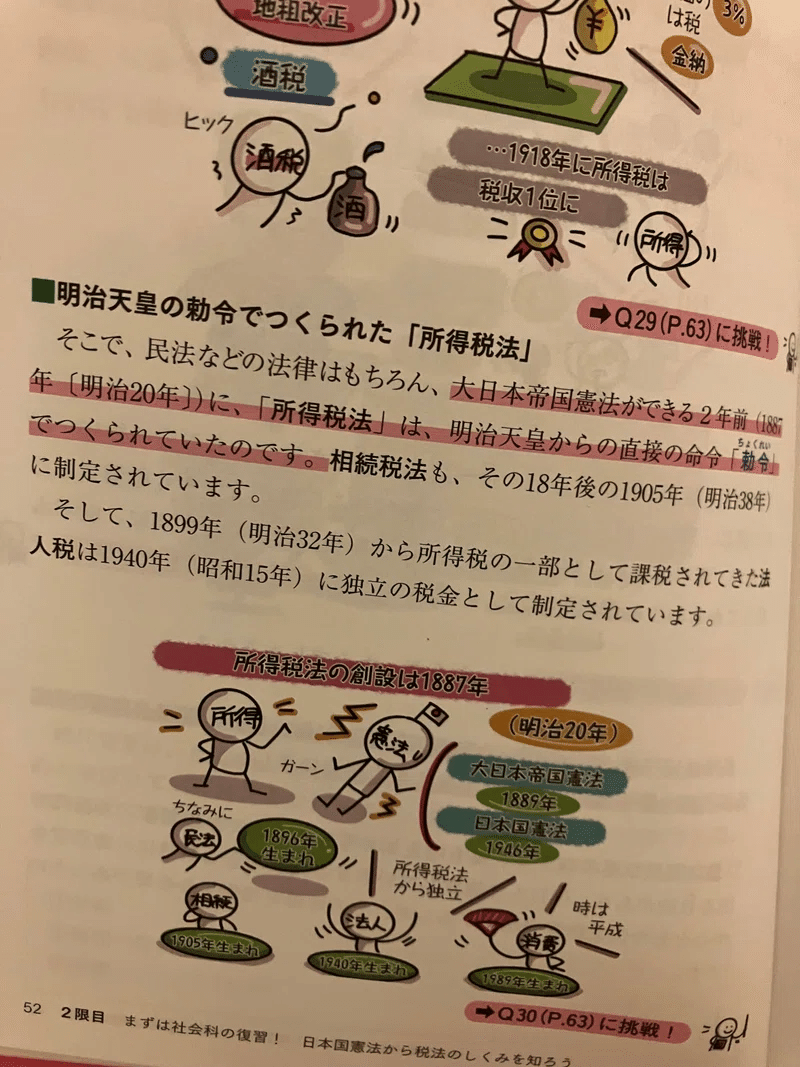 地租改正
¥
は税
3%
金納
酒税
ヒック
酒税
酒
…1918年に所得税は
税収1位に
所得
➡Q29(P.63)に挑戦！
■明治天皇の勅令でつくられた「所得税法」
そこで、民法などの法律はもちろん、大日本帝国憲法ができる2年前（1887
年〔明治20年〕）に、「所得税法」は、明治天皇からの直接の命令「勅令」
ちょくれい
でつくられていたのです。相続税法も、その18年後の1905年（明治38年）
に制定されています。
そして、1899年（明治32年）から所得税の一部として課税されてきた法
人税は1940年（昭和15年）に独立の税金として制定されています。
所得税法の創設は1887年
（明治20年）
所得
ガーン
憲法
大日本帝国憲法
1889年
日本国憲法
1946年
ちなみに
民法
1896年
生まれ
所得税法
から独立
時は
平成
相続
1905年生まれ
法人
1940年生まれ
消費
1989年生まれ
➡Q30(P.63)に挑戦！
52　2限目　まずは社会科の復習！　日本国憲法から税法のしくみを知ろう